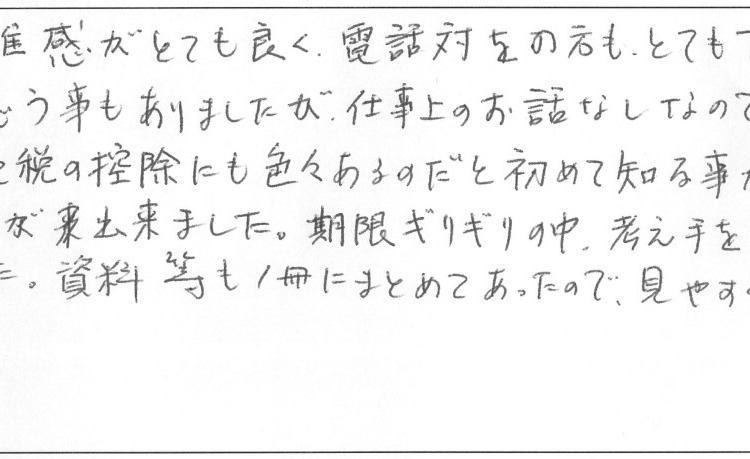 感がとても良く、電話対応の方も、とても
う事もありましたが、仕事上のお話なしなので
税の控除にも色々あるのだと初めて知る事
が来出来ました。期限ギリギリの中、考え手を
た。資料等も1冊にまとめてあったので、見やす